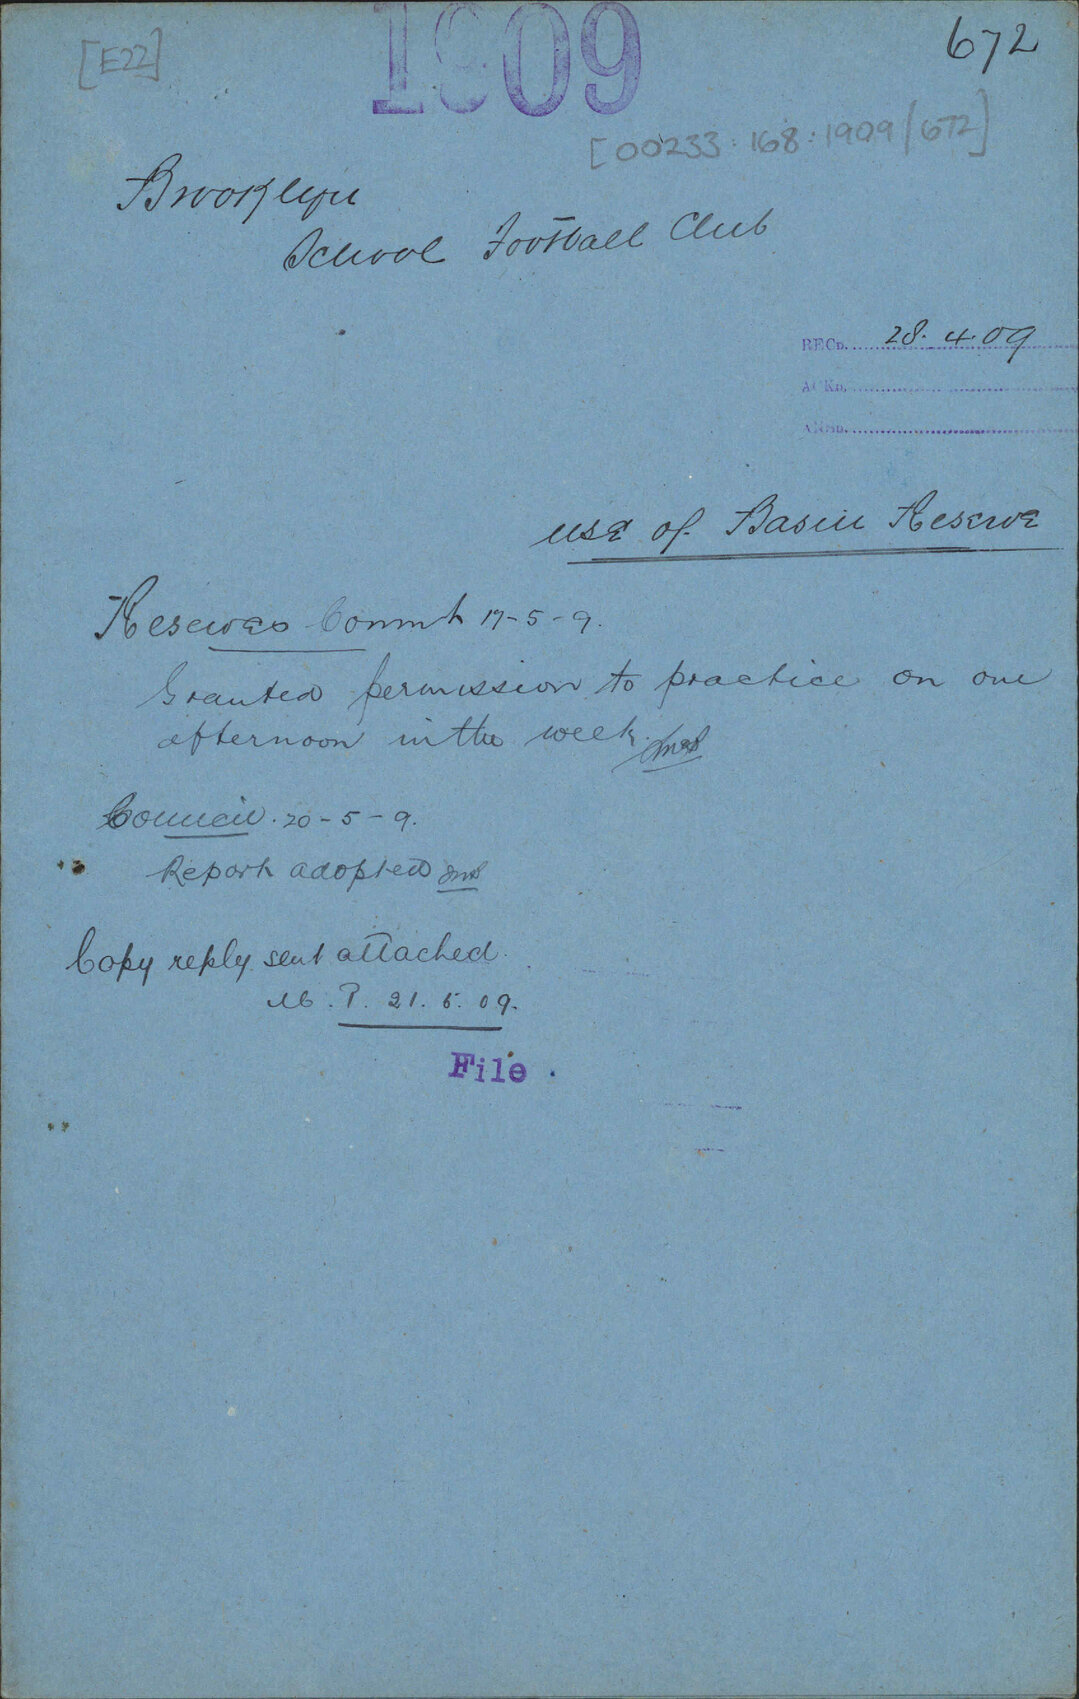 [E22]
1909
672
[00233:168:1909/672]
Brooklyn
School Football Club
RECD. 28.4.09
ACKD.
ANSD.
Use of Basin Reserve
Reserves Commt 17-5-9.
Granted permission to practice on one
afternoon in the week.
Council. 20-5-9.
Report adopted
Copy reply sent attached.
P. 21.5.09.
File